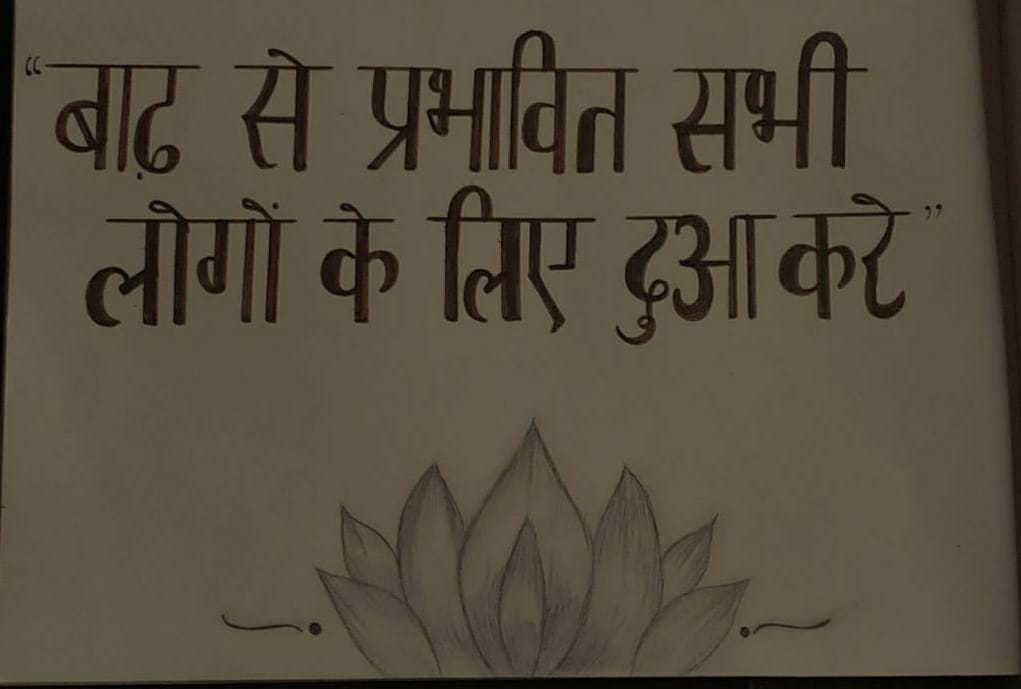 “बाढ़ से प्रभावित सभी
लोगों के लिए दुआ करे”